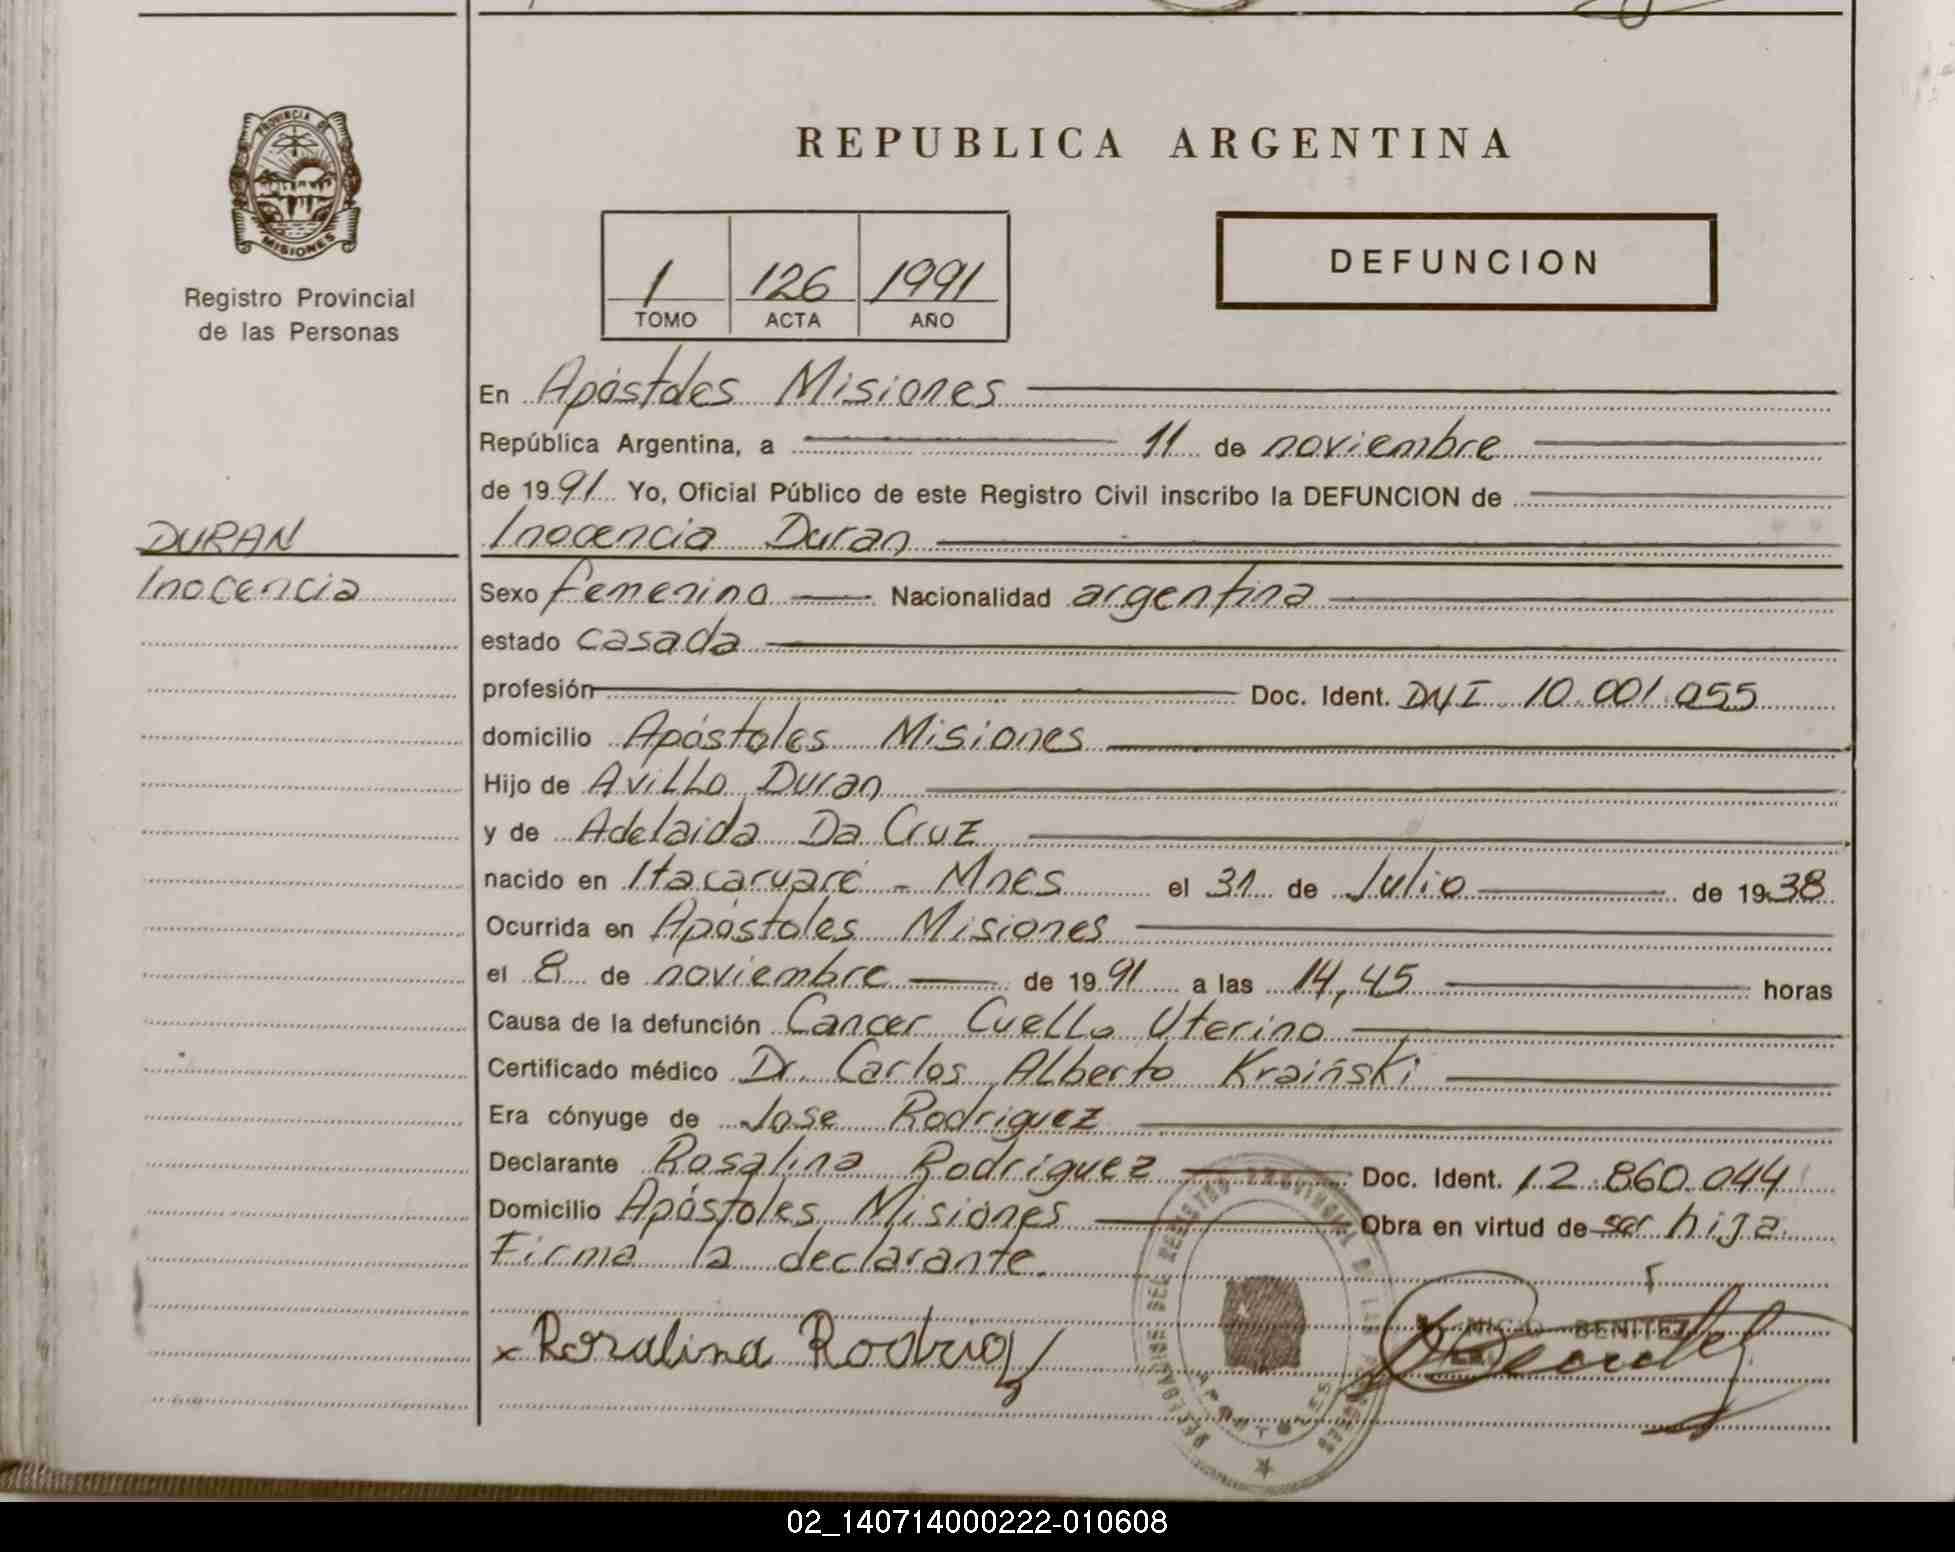 PROVINCIA DE
MISIONES
Registro Provincial
de las Personas
REPUBLICA ARGENTINA
1 126 1991
TOMO ACTA AÑO
DEFUNCION
En Apóstoles Misiones
República Argentina, a 11 de noviembre
de 1991 Yo, Oficial Público de este Registro Civil inscribo la DEFUNCION de
DURAN
Inocencia
Inocencia Duran
Sexo femenino Nacionalidad argentina
estado casada
profesión Doc. Ident. DNI 10.001.055
domicilio Apóstoles Misiones
Hijo de Avillo Duran
y de Adelaida Da Cruz
nacido en Itacaruaré - Mnes el 31 de Julio de 1938
Ocurrida en Apóstoles Misiones
el 8 de noviembre de 1991 a las 14,45 horas
Causa de la defunción Cancer Cuello Uterino
Certificado médico Dr. Carlos Alberto Kraiński
Era cónyuge de Jose Rodriguez
Declarante Rosalina Rodriguez Doc. Ident. 12.860.044
Domicilio Apóstoles Misiones Obra en virtud de ser hija.
Firma la declarante.
x Rosalina Rodrig
BENITEZ
02_140714000222-010608